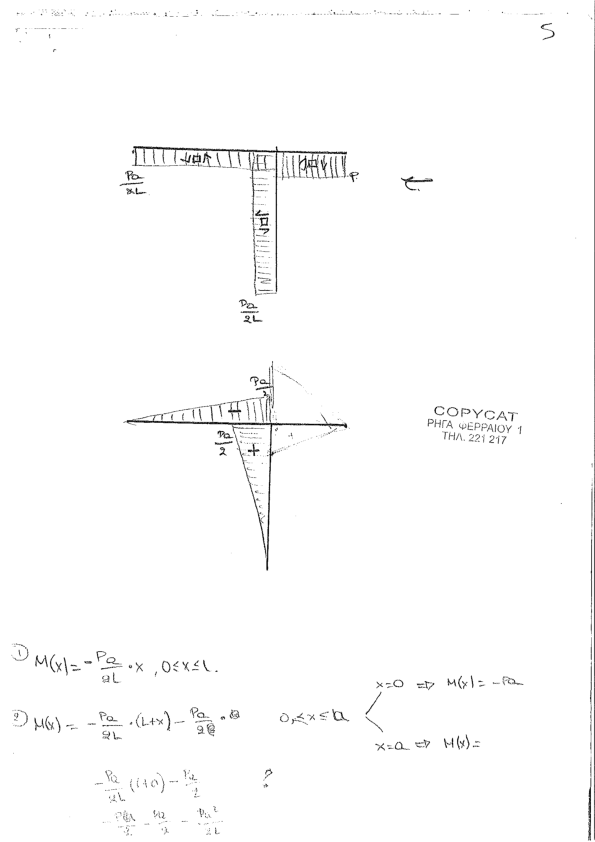 5
Pa/2L
P.
Pa/2L
Pa/2
-
Pa/2
+
+
COPYCAT
ΡΗΓΑ ΦΕΡΡΑΙΟΥ 1
ΤΗΛ. 221 217
① M(x) = -Pa/2L · x , 0≤x≤L.
x=0 ⇒ M(x) = -Pa
② M(x) = -Pa/2L · (L+x) - Pa/2 0≤x≤a
x=a ⇒ M(x)=
-Pa/2L (L+a) - Pa/2 ?
-Pa/2 - Pa/2 - Pa²/2L